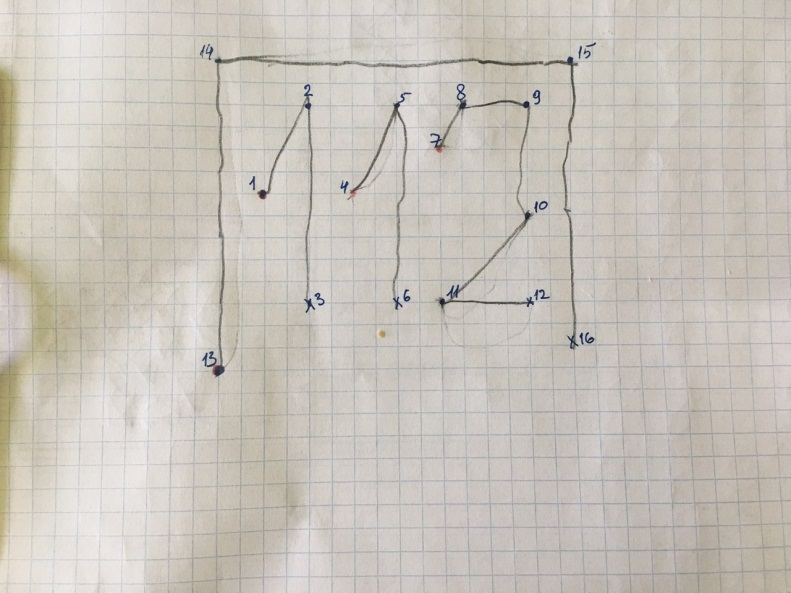 14 15
2 5 8 9
7
1 4
10
3 6 11 12
16
13